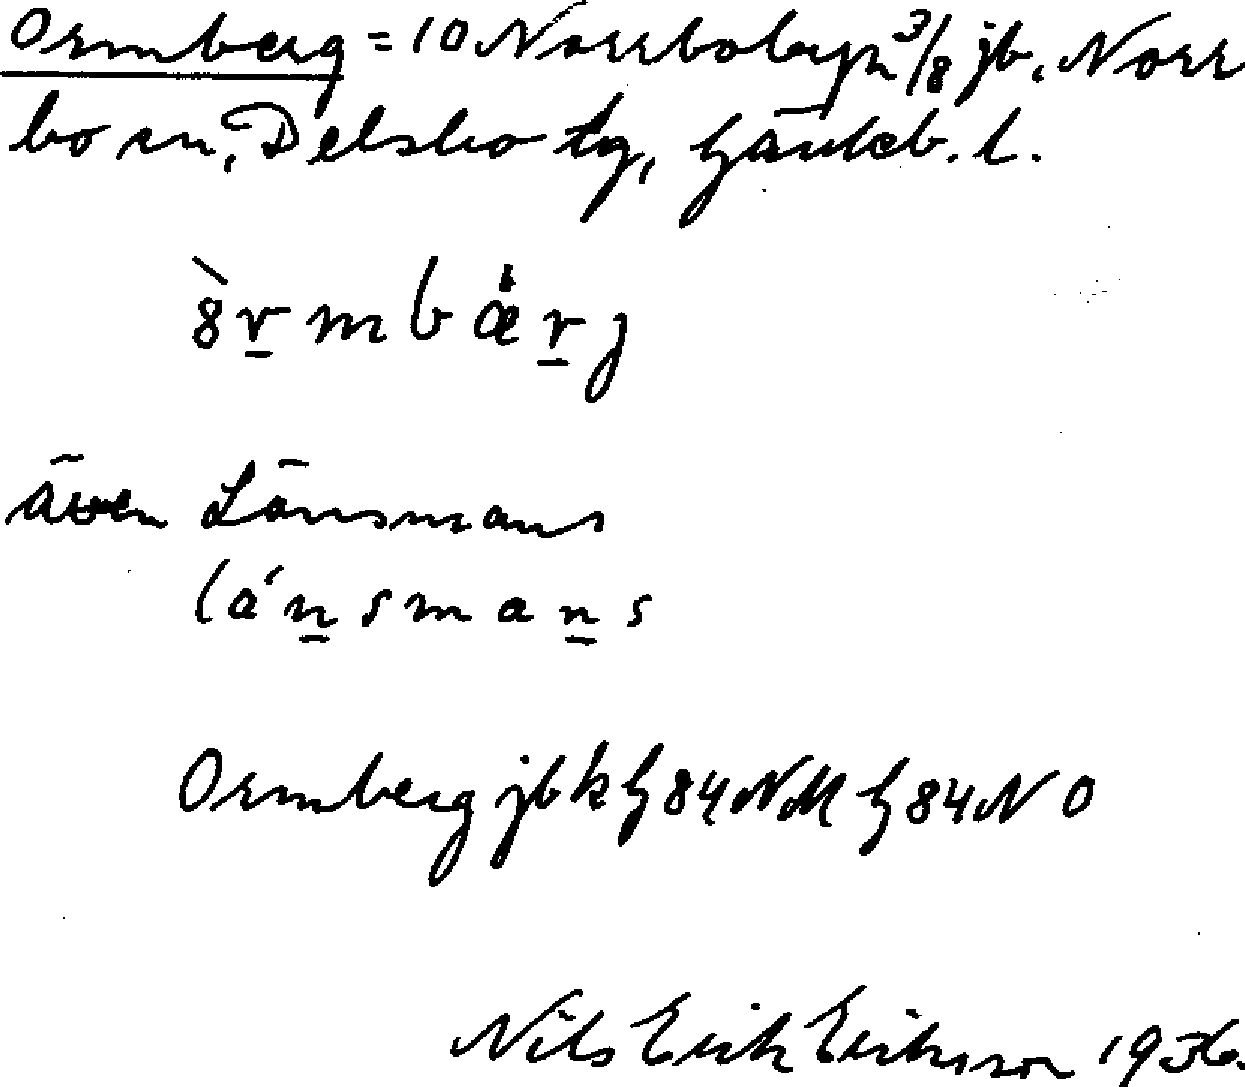 Ormberg = 10 Norrbobyn 3/8 jb. Norr
bo sn, Delsbo tg, Gävleb. l.
8̀r̲mbæ̇r̲j
även Länsmans
lán̲sman̲s
Ormberg jb k G 84 NM G 84 NO
Nils Erik Eriksson 1936.